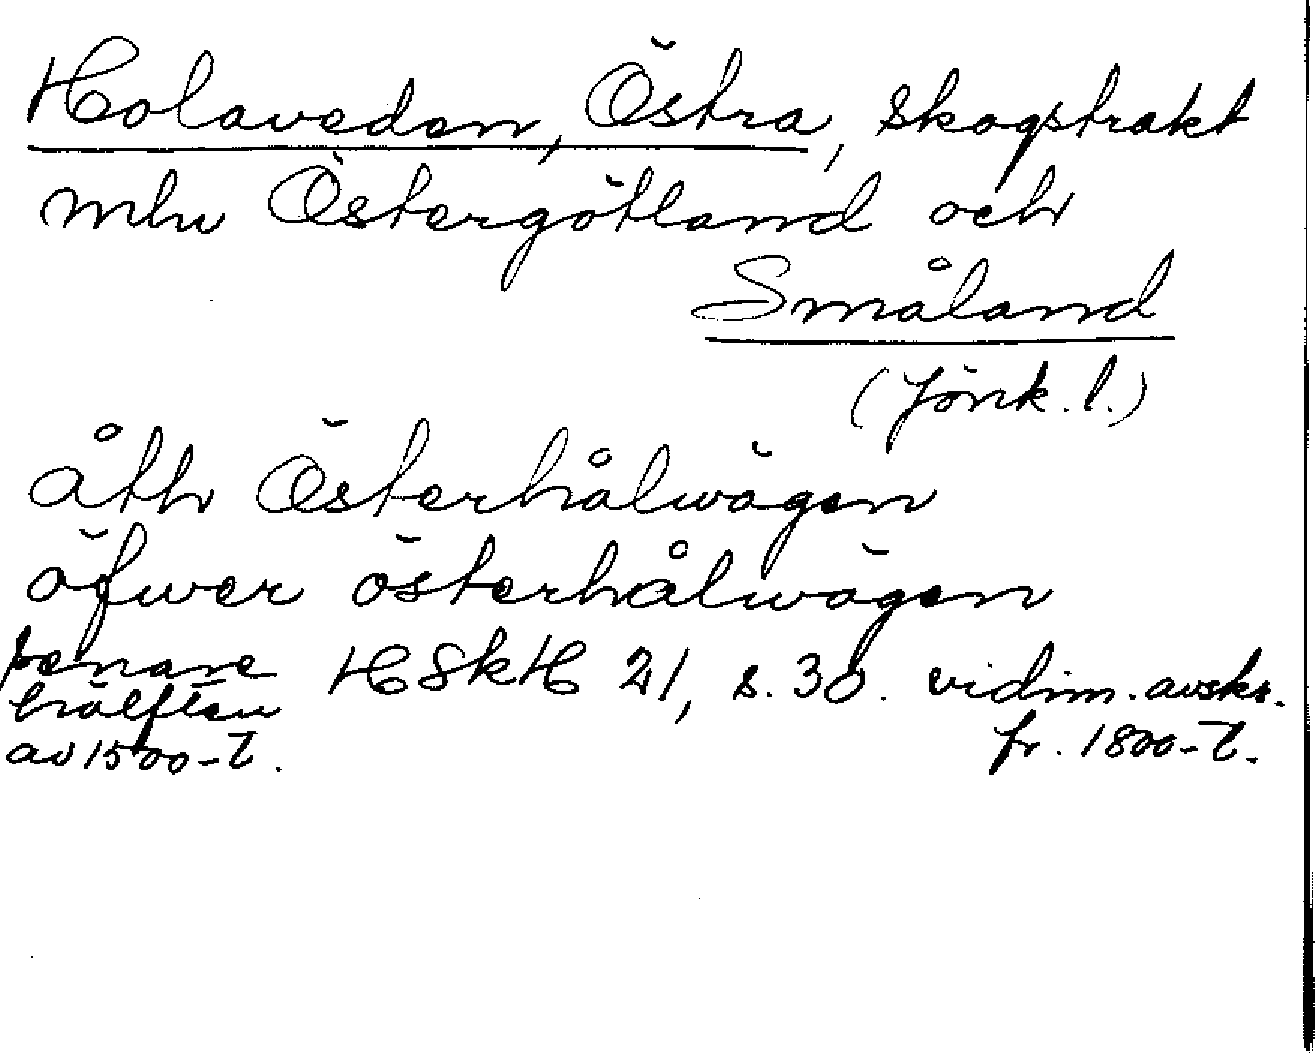 Holaveden, Östra, skogstrakt
mlu Östergötland och
Småland
(Jönk. l.)
åth Österhålwägen
öfwer österhålwägen
senare HSkH 21, s. 30. vidim. avskr.
hälften fr. 1800-t.
av 1500-t.